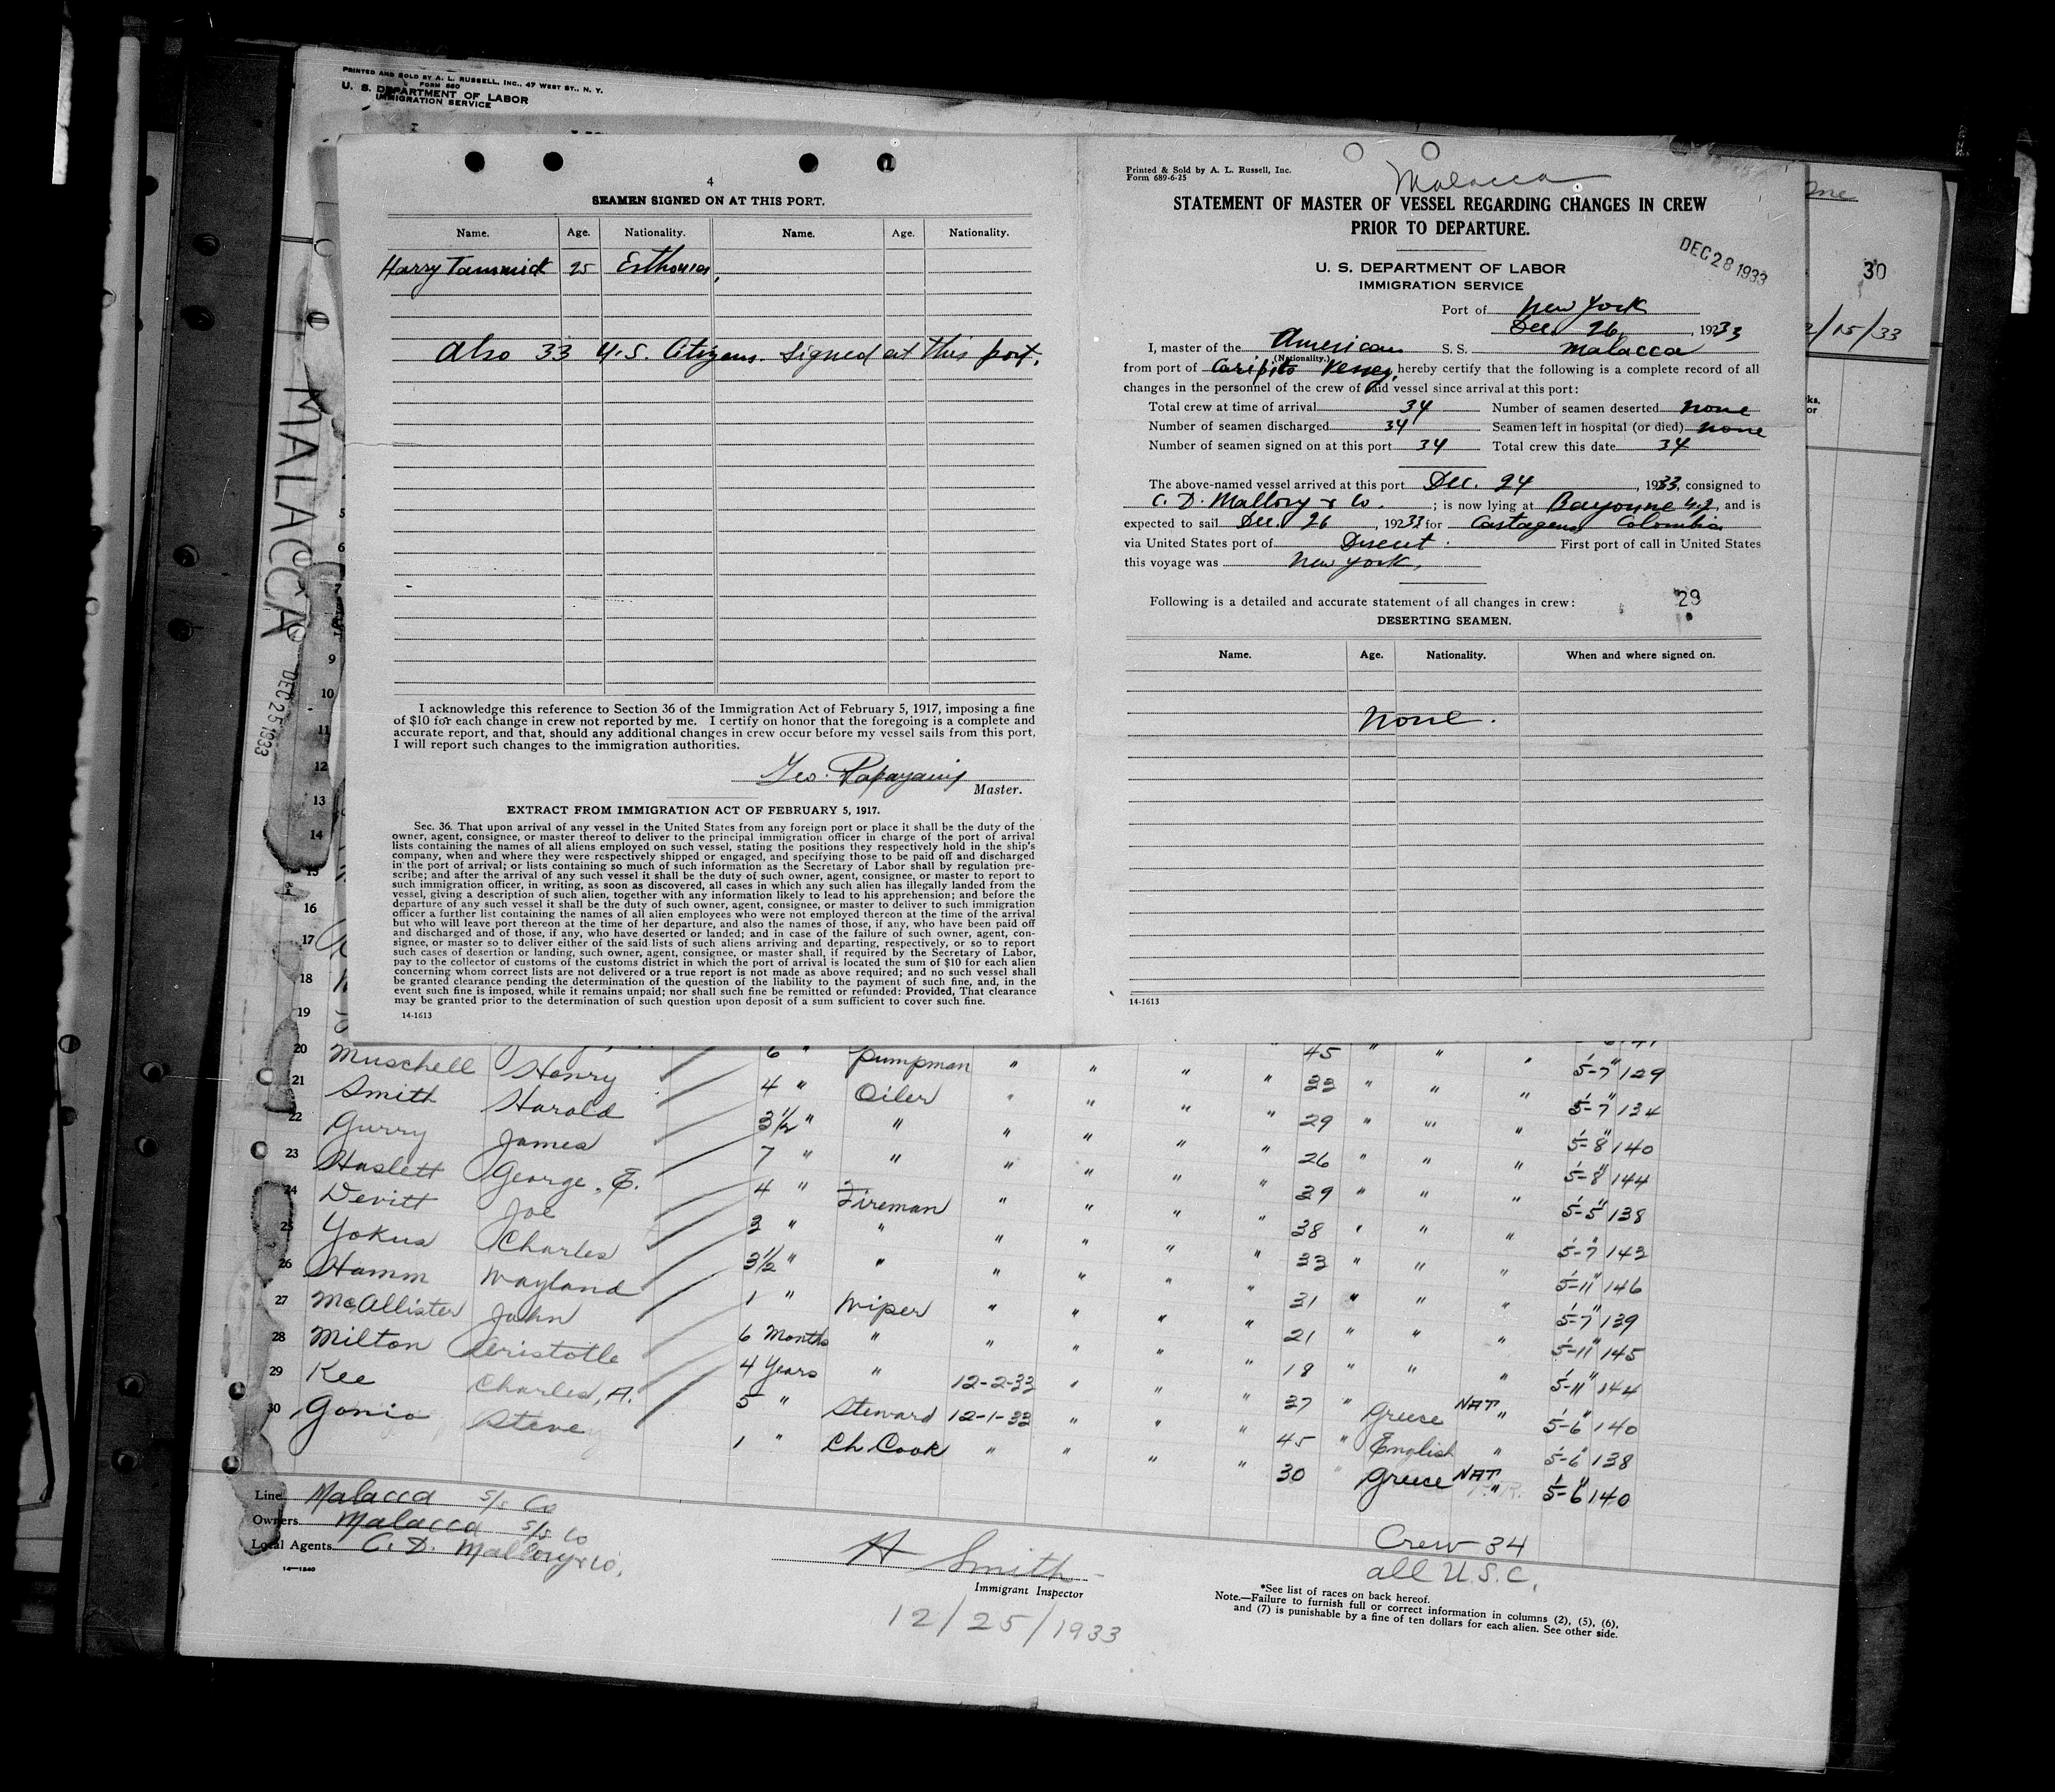 PRINTED AND SOLD BY A. L. RUSSELL, INC., 47 WEST ST., N. Y.
FORM 680
U. S. DEPARTMENT OF LABOR
IMMIGRATION SERVICE
MALACCA
DEC 25 1933
4
SEAMEN SIGNED ON AT THIS PORT.
Name. Age. Nationality. Name. Age. Nationality.
Harry 25
Also 33 U.S. Citizens. Signed at this port.
I acknowledge this reference to Section 36 of the Immigration Act of February 5, 1917, imposing a fine
of $10 for each change in crew not reported by me. I certify on honor that the foregoing is a complete and
accurate report, and that, should any additional changes in crew occur before my vessel sails from this port,
I will report such changes to the immigration authorities.
Geo.
Master.
EXTRACT FROM IMMIGRATION ACT OF FEBRUARY 5, 1917.
Sec. 36. That upon arrival of any vessel in the United States from any foreign port or place it shall be the duty of the
owner, agent, consignee, or master thereof to deliver to the principal immigration officer in charge of the port of arrival
lists containing the names of all aliens employed on such vessel, stating the positions they respectively hold in the ship's
company, when and where they were respectively shipped or engaged, and specifying those to be paid off and discharged
in the port of arrival; or lists containing so much of such information as the Secretary of Labor shall by regulation pre-
scribe; and after the arrival of any such vessel it shall be the duty of such owner, agent, consignee, or master to report to
such immigration officer, in writing, as soon as discovered, all cases in which any such alien has illegally landed from the
vessel, giving a description of such alien, together with any information likely to lead to his apprehension; and before the
departure of any such vessel it shall be the duty of such owner, agent, consignee, or master to deliver to such immigration
officer a further list containing the names of all alien employees who were not employed thereon at the time of the arrival
but who will leave port thereon at the time of her departure, and also the names of those, if any, who have been paid off
and discharged and of those, if any, who have deserted or landed; and in case of the failure of such owner, agent, con-
signee, or master so to deliver either of the said lists of such aliens arriving and departing, respectively, or so to report
such cases of desertion or landing, such owner, agent, consignee, or master shall, if required by the Secretary of Labor,
pay to the collector of customs of the customs district in which the port of arrival is located the sum of $10 for each alien
concerning whom correct lists are not delivered or a true report is not made as above required; and no such vessel shall
be granted clearance pending the determination of the question of the liability to the payment of such fine, and, in the
event such fine is imposed, while it remains unpaid; nor shall such fine be remitted or refunded: Provided, That clearance
may be granted prior to the determination of such question upon deposit of a sum sufficient to cover such fine.
14-1613
Printed & Sold by A. L. Russell, Inc.
Form 689-6-25
Malacca
STATEMENT OF MASTER OF VESSEL REGARDING CHANGES IN CREW
PRIOR TO DEPARTURE.
DEC 28 1933
U. S. DEPARTMENT OF LABOR
IMMIGRATION SERVICE
Port of New York
Dec. 26, 1923 33
I, master of the American S. S. Malacca
(Nationality.)
from port of Caripito hereby certify that the following is a complete record of all
changes in the personnel of the crew of said vessel since arrival at this port:
Total crew at time of arrival 34 Number of seamen deserted none
Number of seamen discharged 34 Seamen left in hospital (or died) none
Number of seamen signed on at this port 34 Total crew this date 34
The above-named vessel arrived at this port Dec. 24, 1933, consigned to
C. D. Mallory & Co.; is now lying at Bayonne, and is
expected to sail Dec. 26, 192 33 for Colombia
via United States port of First port of call in United States
this voyage was New York.
Following is a detailed and accurate statement of all changes in crew:
29
DESERTING SEAMEN.
Name. Age. Nationality. When and where signed on.
none.
14-1613
30
2/15/33
5
6
9
10
11
12
13
14
15
16
17
18
19
6 " Pumpman " " " " 45 " " "
20 Muschell Henry 4 " Oiler " " " " 33 " " " 5-7" 129
21 Smith Harold 3½ " " " " " " 29 " " " 5-7" 134
22 Gurry James 7 " " " " " " 26 " " " 5-8" 140
23 Haslett George, E. 4 " Fireman " " " " 39 " " " 5-8" 144
24 Devitt Joe 3 " " " " " " 38 " " " 5-5" 138
25 Yokus Charles 3½ " " " " " " 33 " " " 5-7" 143
26 Hamm Wayland 1 " Wiper " " " " 31 " " " 5-11" 146
27 McAllister John 6 Months " " " " " 21 " " " 5-7" 139
28 Milton Aristotle 4 Years " 12-2-33 " " " 18 " " " 5-11" 145
29 Kee Charles, A. 5 " Steward 12-1-33 " " " 37 " Greece NAT " 5-11" 144
30 Gonio Steve 1 " Ch. Cook " " " " 45 " English " 5-6" 140
5-6" 138
30 " Greece NAT " 5-6" 140
Line Malacca S/S Co
Owners Malacca S/S Co
Local Agents C. D. Mallory & Co.
14—1240
H Smith
Immigrant Inspector
12/25/1933
Crew 34
all U.S.C.
*See list of races on back hereof.
Note.—Failure to furnish full or correct information in columns (2), (5), (6),
and (7) is punishable by a fine of ten dollars for each alien. See other side.